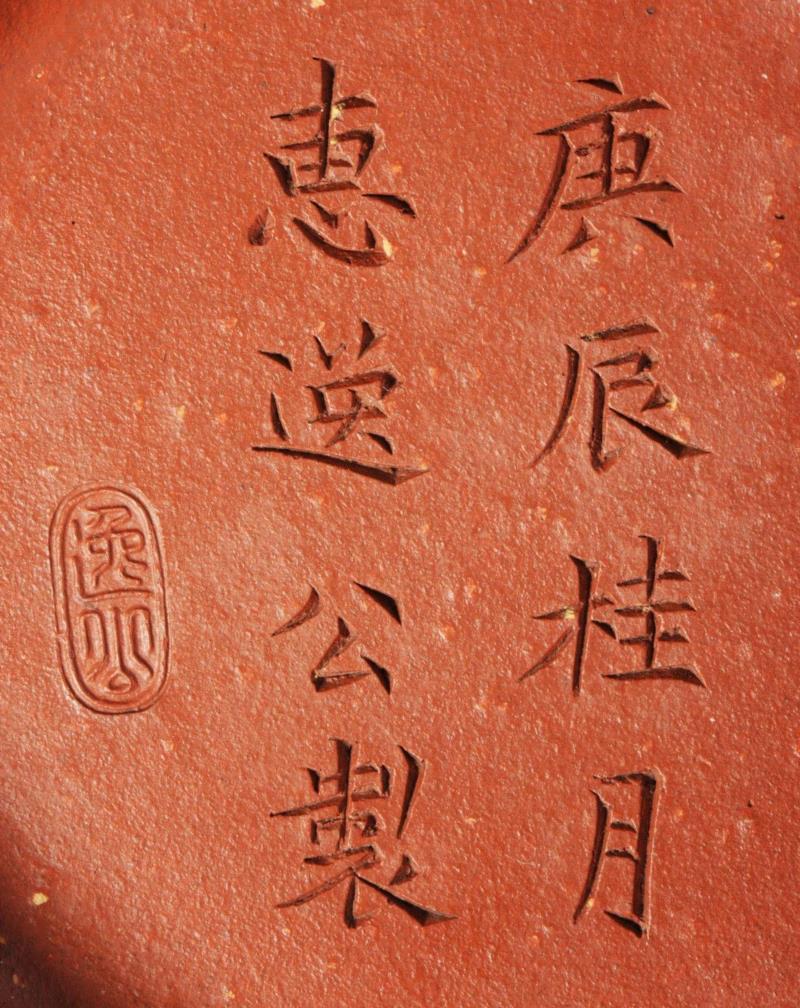 庚辰桂月
惠逸公製
逸公